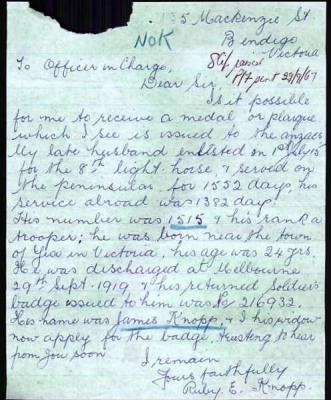 5 Mackenzie St
NOK
Bendigo
Victoria
To Officer in Charge,
Dear Sir,
Is it possible
for me to receive a medal or plaque
which I see is issued to the anzacs
My late husband enlisted on 1st July 15
for the 8th light horse, & served on
the peninsular for 1552 days, his
service abroad was 1382 days.
His number was 1515 & his rank a
trooper; he was born near the town
of Yea in Victoria, his age was 24 yrs.
He was discharged at Melbourne
29th Sept 1919, & his returned Soldiers
badge issued to him was No 216932.
His name was James Knopp, & I his widow
now apply for the badge, trusting to hear
from you soon.
I remain
Yours faithfully
Ruby E. Knopp.